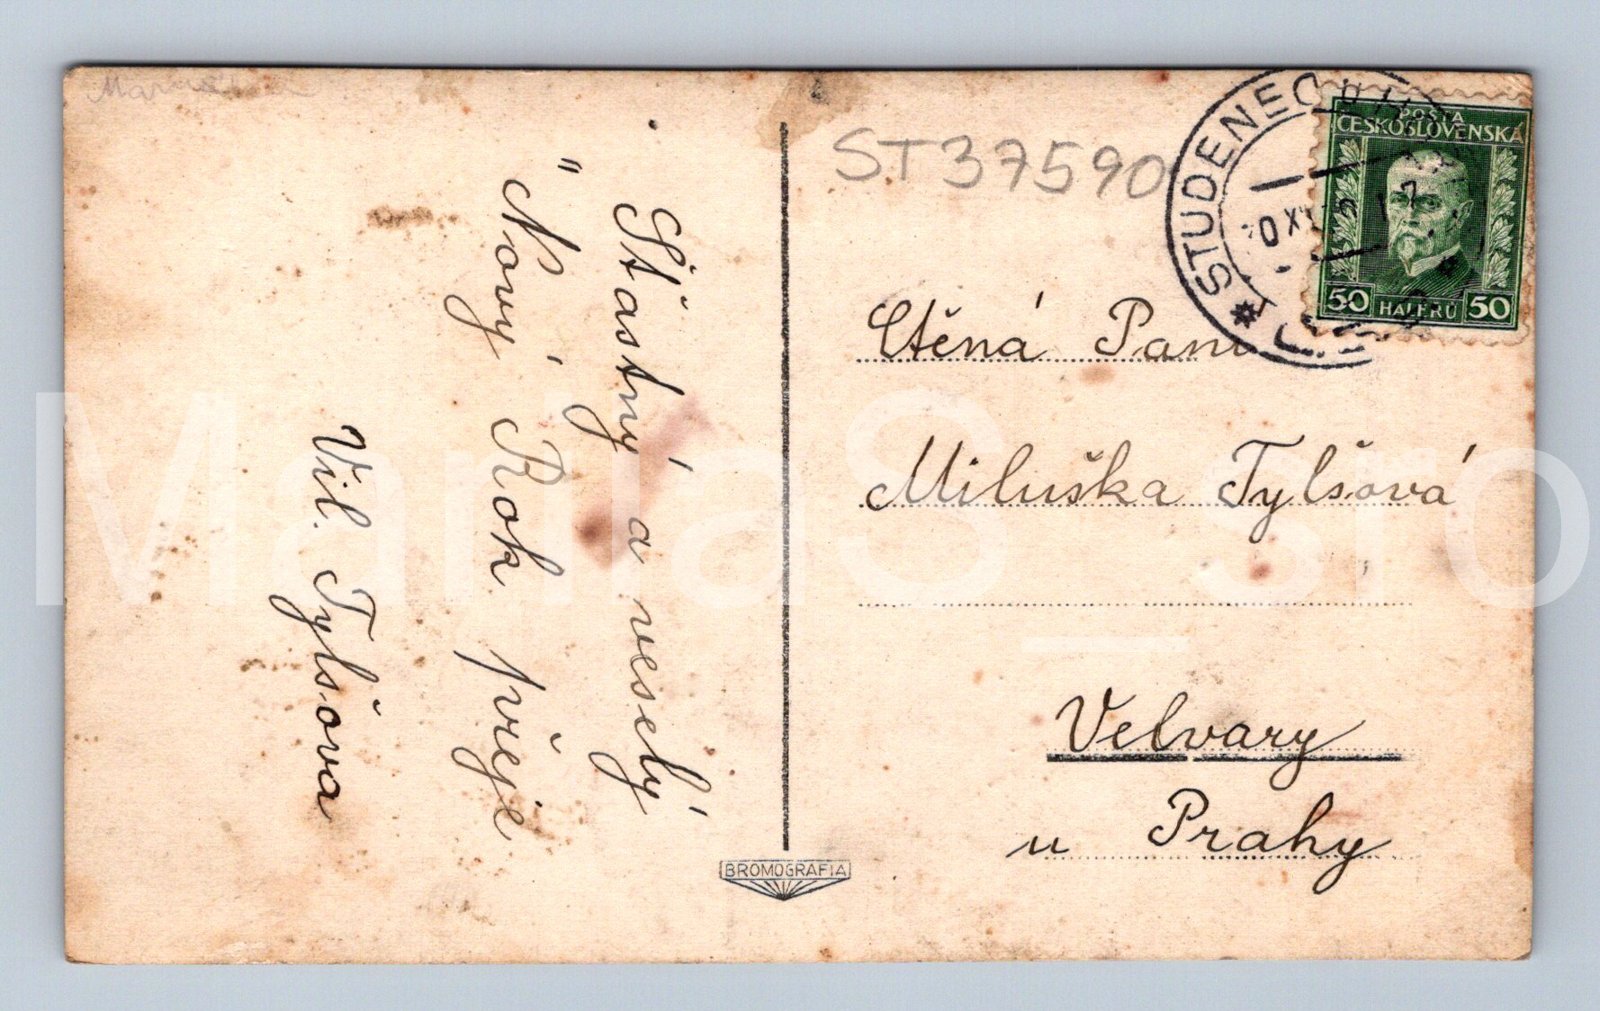 Šťastný a veselý
"Nový Rok přeje
Vil. Tylšova
BROMOGRAFIA
ST37590
STUDENEC U
POŠTA
ČESKOSLOVENSKÁ
50 HALÉŘŮ 50
Ctěná Paní
Miluška Tylšová
Velvary
u Prahy
ManiaS_sro